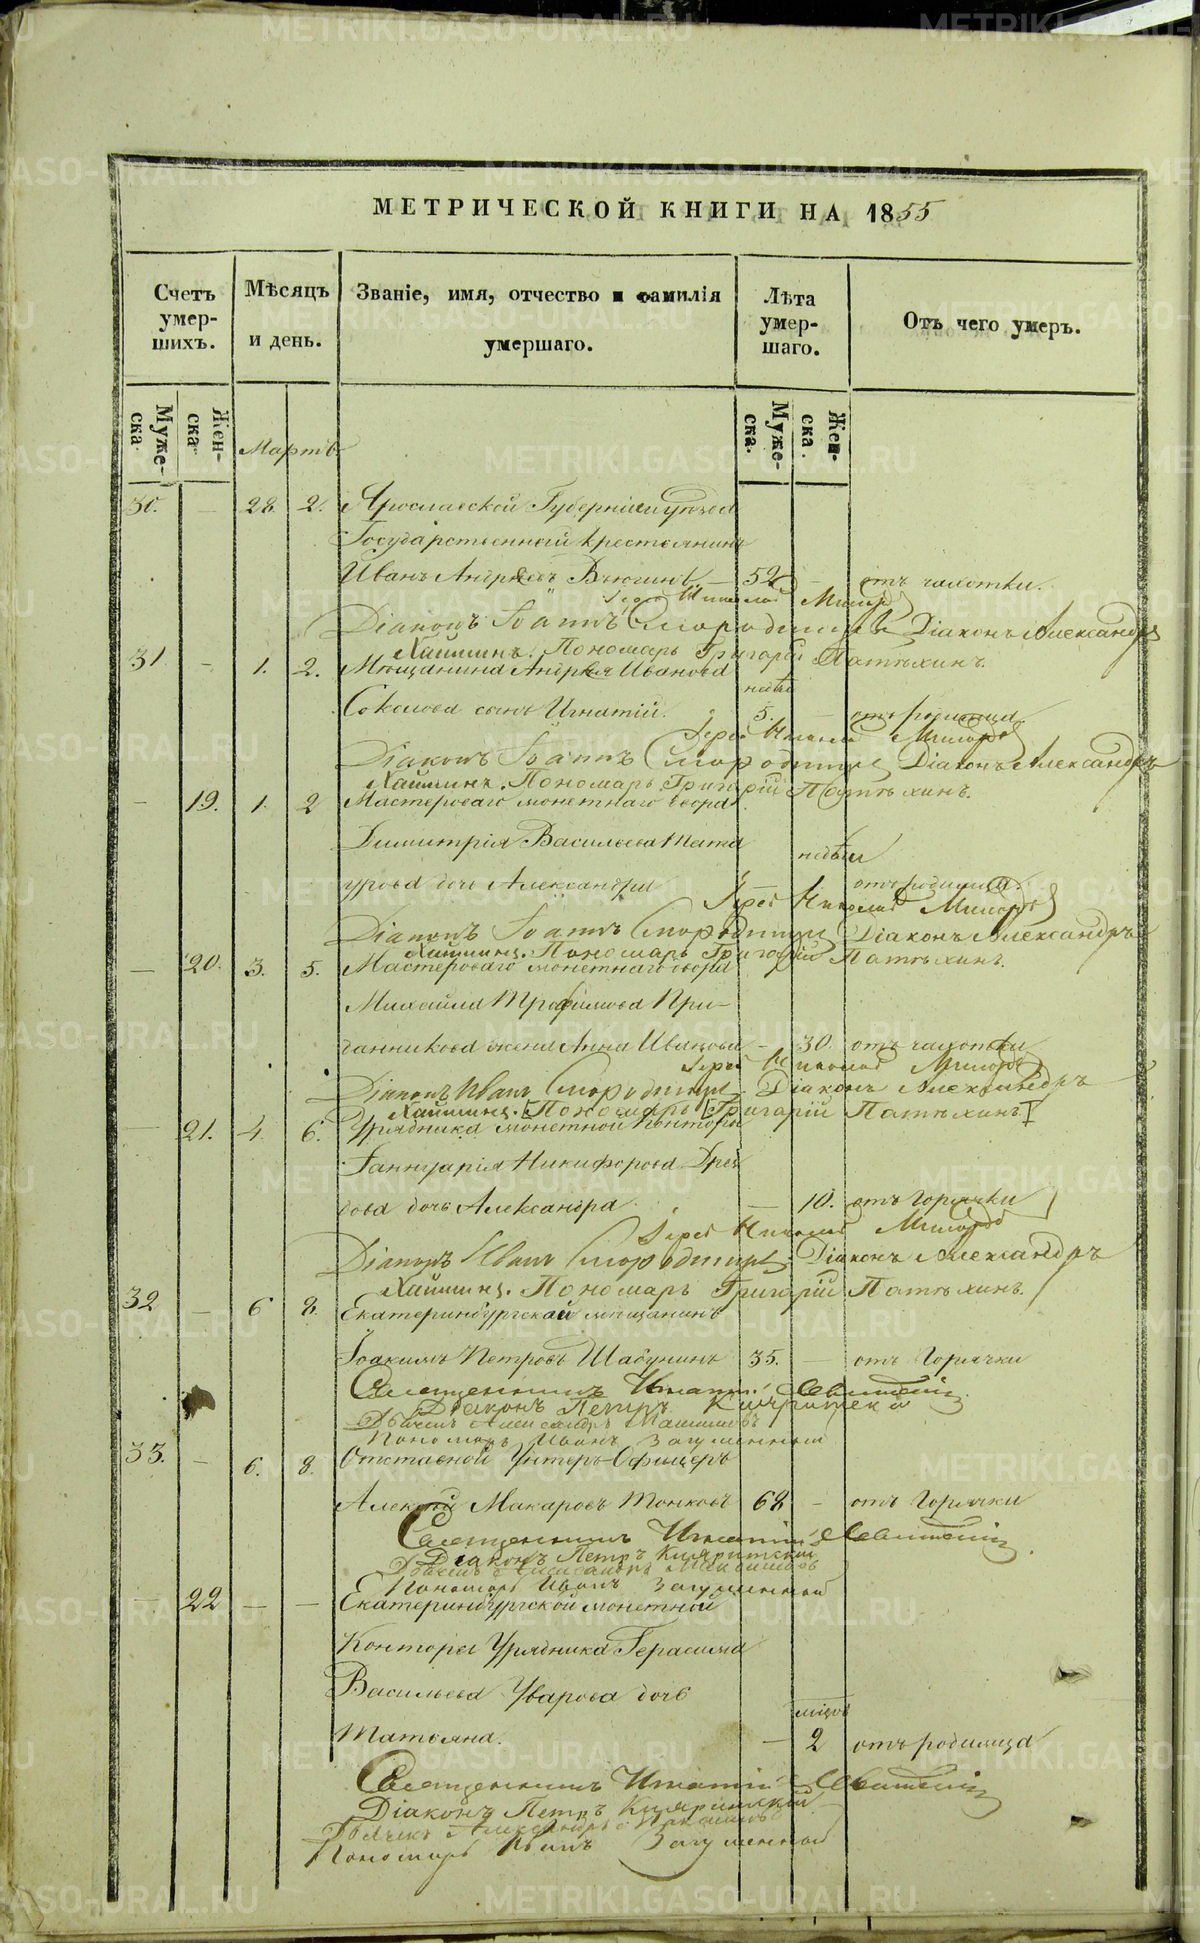 МЕТРИЧЕСКОЙ КНИГИ НА 1855
Счетъ умер-шихъ.
Мѣсяцъ и день.
Званіе, имя, отчество и фамилія умершаго.
Лѣта умер-шаго.
Отъ чего умеръ.
Муже-ска.
Жен-ска
Муже-ска.
Жен-ска.
Мартъ
30. — 28. 2. Ярославской Губерніи уѣзда
Государственный крестьянинъ
Иванъ Андреевъ 52 — отъ чахотки.
Іерей Николай
Діаконъ Іоаннъ Смородинцевъ Діаконъ Александръ
Пономарь Григорій
31. — 1. 2. Мѣщанина Андрея Иванова
недѣль
Соколова сынъ Игнатій. 5. — отъ родимца.
Іерей Николай
Діаконъ Іоаннъ Смородинцевъ Діаконъ Александръ
Пономарь Григорій
— 19. 1. 2 Мастероваго монетнаго двора
Димитрія Васильева Тата
недѣли
урова дочь Александра — отъ родимца.
Іерей Николай
Діаконъ Іоаннъ Смородинцевъ Діаконъ Александръ
Пономарь Григорій
— 20. 3. 5. Мастероваго монетнаго двора
Михаила Трофимова При-
данникова жена Анна Иванова — 30. отъ чахотки
Іерей Николай
Діаконъ Иванъ Смородинцевъ Діаконъ Александръ
Пономарь Григорій
— 21. 4. 6. Урядника монетной Конторы
Іаннуарія Никифорова
дова дочь Александра. — 10. отъ горячки
Іерей Николай
Діаконъ Иванъ Смородинцевъ Діаконъ Александръ
Пономарь Григорій
32 — 6 8. Екатеринбургской мѣщанинъ
Іоакимъ Петровъ Шабунинъ 35. — отъ горячки
Священникъ Игнатій
Діаконъ Петръ
Дьячекъ Александръ
Пономарь Иванъ Загуменный
33. — 6. 8. Отставной Унтеръ-Офицеръ
Алексѣй Макаровъ Тонковъ 68 — отъ горячки
Священникъ Игнатій
Діаконъ Петръ
Дьячекъ Александръ
Пономарь Иванъ Загуменный
— 22 — — Екатеринбургской монетной
Конторы Урядника Герасима
Васильева Уварова дочь
мѣсяц
Татьяна. — 2 отъ родимца
Священникъ Игнатій
Діаконъ Петръ
Дьячекъ Александръ
Пономарь Иванъ Загуменный
METRIKI.GASO-URAL.RU